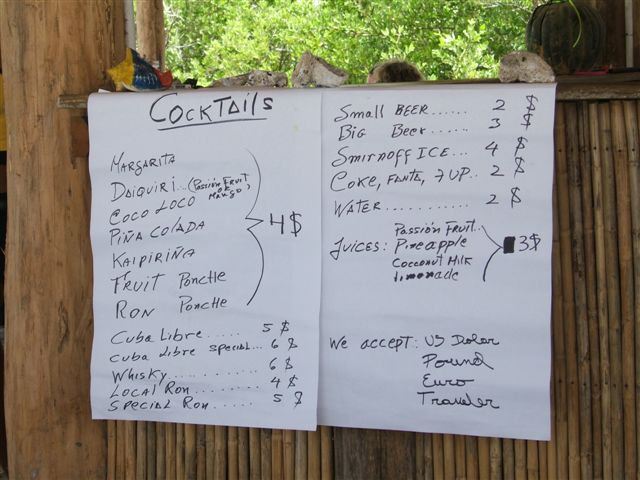 COCKTAilS
MARGARITA
DAIQUIRI...(PASSION FRUIT
OR
MANGO)
COCO LOCO
PIÑA COLADA
KAIPIRIÑA
FRUIT PONCHE
RON PONCHE
4$
CUBA LIBRE..... 5 $
CUBA LIBRE SPECIAL... 6 $
WHISKY.......... 6 $
LOCAL RON......... 4 $
SPECIAL RON...... 5 $
Small BEER...... 2 $
Big Beer........ 3 $
SmirnoFF ICE... 4 $
COKE, FANTA, 7 UP.. 2 $
WATER........... 2 $
JUICES: PASSIÓN FRUIT..
Pineapple
COCONUT MilK
limonade
3$
We accept: US Dolar
Pound
Euro
Traveler